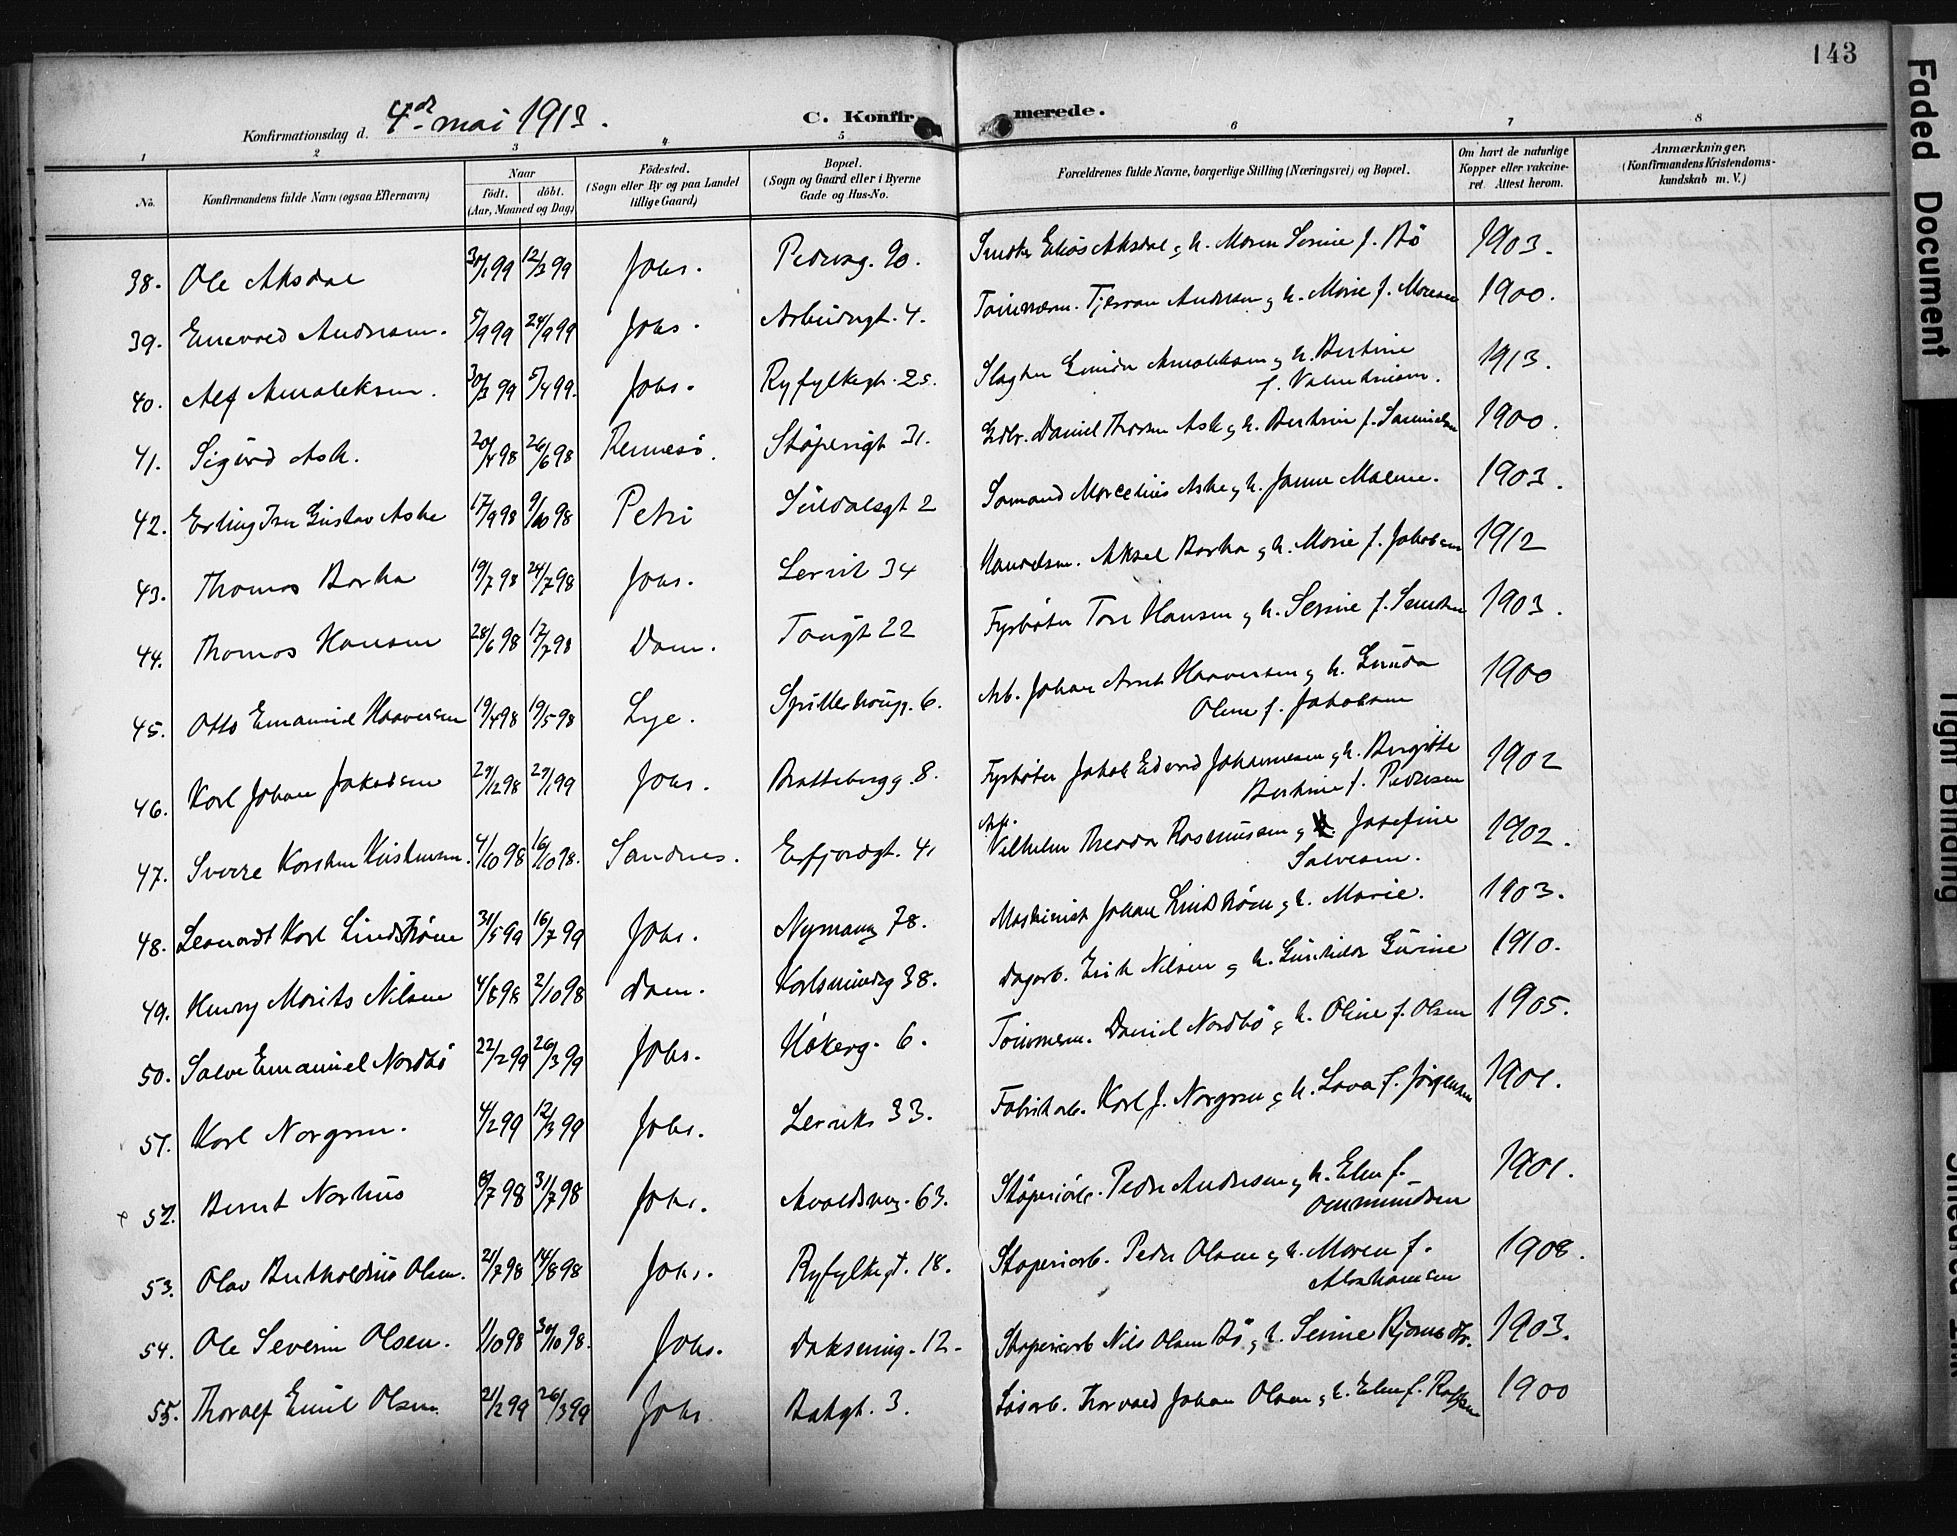 143
Konfirmationsdag d. 4de mai 1913.
C. Konfirmerede.
1 2 3 4 5 6 7 8
No. Konfirmandens fulde Navn (ogsaa Efternavn) Naar født. døbt. (Aar, Maaned og Dag) Fødested. (Sogn eller By og paa Landet tillige Gaard) Bopæl. (Sogn og Gaard eller i Byerne Gade og Hus-No. Forældrenes fulde Navne, borgerlige Stilling (Næringsvei) og Bopæl. Om havt de naturlige Kopper eller vakcineret. Attest herom. Anmærkninger. (Konfirmandens Kristendomskundskab m. V.)
38. Ole Aksdal 30/1 99 12/3 99 Johs. Pedersg. 90. Elias Aksdal g h. Maren Serine f. Bø 1903.
39. Enevald Andersen. 5/9 99 24/9 99 Johs. Arbeidergt. 4. Tømmerm. Andersen g h. Marie f. 1900.
40. Alf 30/3 99 5/4 99. Johs. Ryfylkegt. 25. Slagter g h. Bertine 1913.
f.
41. Sigurd Ask. 20/4 98 26/6 98 Rennesø. Støperigt 31. Daniel Ask g h. Bertine f. Samuelsen 1900.
42. Erling Gustav Aske 17/9 98 9/10 98 Petri Suldalsgt 2 Sømand Marcelius Aske g h. Janna Malene. 1903.
43. Thomas Barka 19/7 98 24/7 98 Johs. Lervik 34 Handelsm. Aksel Barka g h. Marie f. Jakobsen 1912
44. Thomas Hansen 28/6 98 17/7 98 Dom. Taugt 22 Fyrbøter Tore Hansen g h. Serine f. 1903.
45. Otto Emanuel Haaversen 19/4 98 19/5 98 Lye. 6. Arb. Johan Haaversen g h. 1900
Oline f. Jakobsen
46. Karl Johan Jakobsen 29/12 98 29/1 99 Johs. Brattebergg. 8. Fyrbøter Jakob Edvard Johannesen g h. Bergitte 1902
Bertine f. Pedersen
47. Sverre Karsten Kristensen. 4/10 98 16/10 98. Sandnes. Erfjordgt. 4. Arb. Vilhelm Theodor Rasmussen g Josefine 1902.
Salvesen.
48. Leonardt Karl Lindstrøm 31/5 99 16/7 99 Johs. Nymansg 78. Maskinist Johan Lindstrøm g h. Marie. 1903.
49. Henry Morits Nilsen 4/8 98 2/10 98 Dom. Karlsmindeg 38. Dagarb. Erik Nilsen g h. Gunhilda Gurine 1910.
50. Salve Emanuel Nordbø 22/2 99 26/3 99 Johs. Høkerg. 6. Tømmerm. Daniel Nordbø g h. Oline f. Olsen 1905.
51. Karl Norgren. 4/2 99 12/3 99 Johs. Lervik 33. Fabrikarb. Karl J. Norgren g h. Lova f. Jørgensen 1901.
52. Bernt Norhus 8/7 98 31/7 98 Johs. Avaldsneg. 63. Støperiarb. Peder Andersen g h. Elen f. 1901.
Ommundsen
53. Olav Bertholdius Olsen. 21/7 98 14/8 98 Johs. Ryfylkegt. 18. Støperiarb. Peder Olsen g h. Maren f. 1908.
Abrahamsen
54. Ole Severin Olsen. 1/10 98 30/10 98. Johs. 12. Støperiarb Nils Olsen Bø g h. Serine 1903.
55. Thoralf Emil Olsen 21/2 99 26/3 99 Johs. Bakgt. 3. Løsarb. Thorvald Johan Olsen g h. Elen f. 1900
Faded Document
Tight Binding